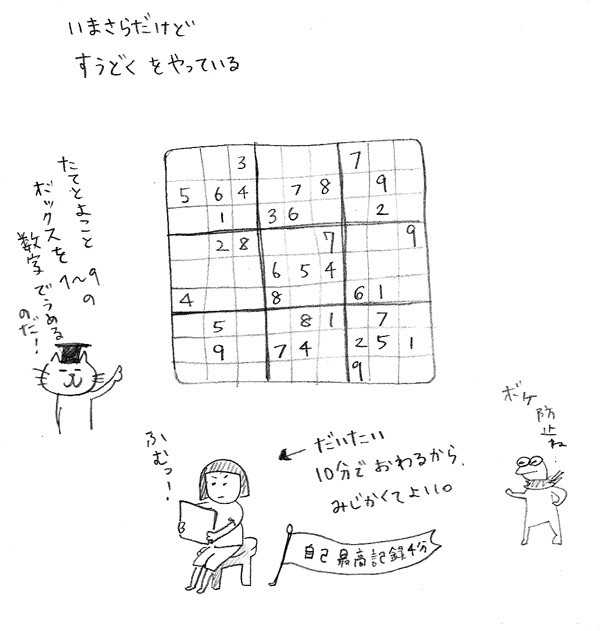 いまさらだけど
すうどくをやっている
たてとよこと
ボックスを1〜9の
数字でうめる
のだ!
3 7
5 6 4 7 8 9
1 3 6 2
2 8 7 9
6 5 4
4 8 6 1
5 8 1 7
9 7 4 2 5 1
9
ボケ
防止ね…
ふむっ!
だいたい
10分でおわるから、
みじかくてよい。
自己最高記録4分